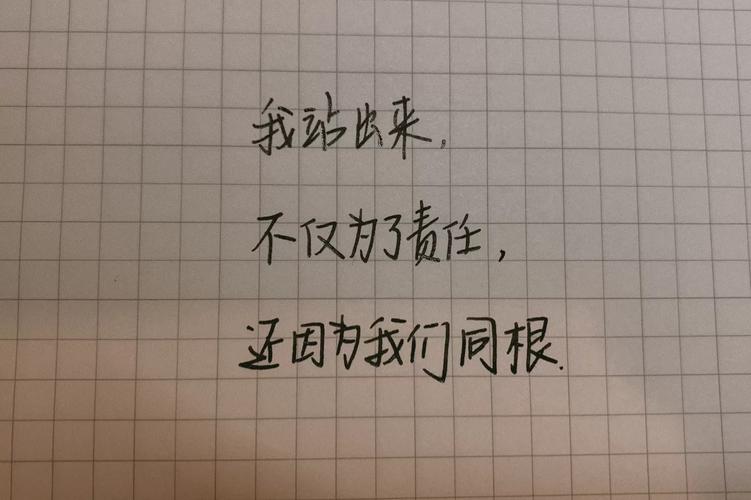 我站出来,
不仅为了责任,
还因为我们同根.